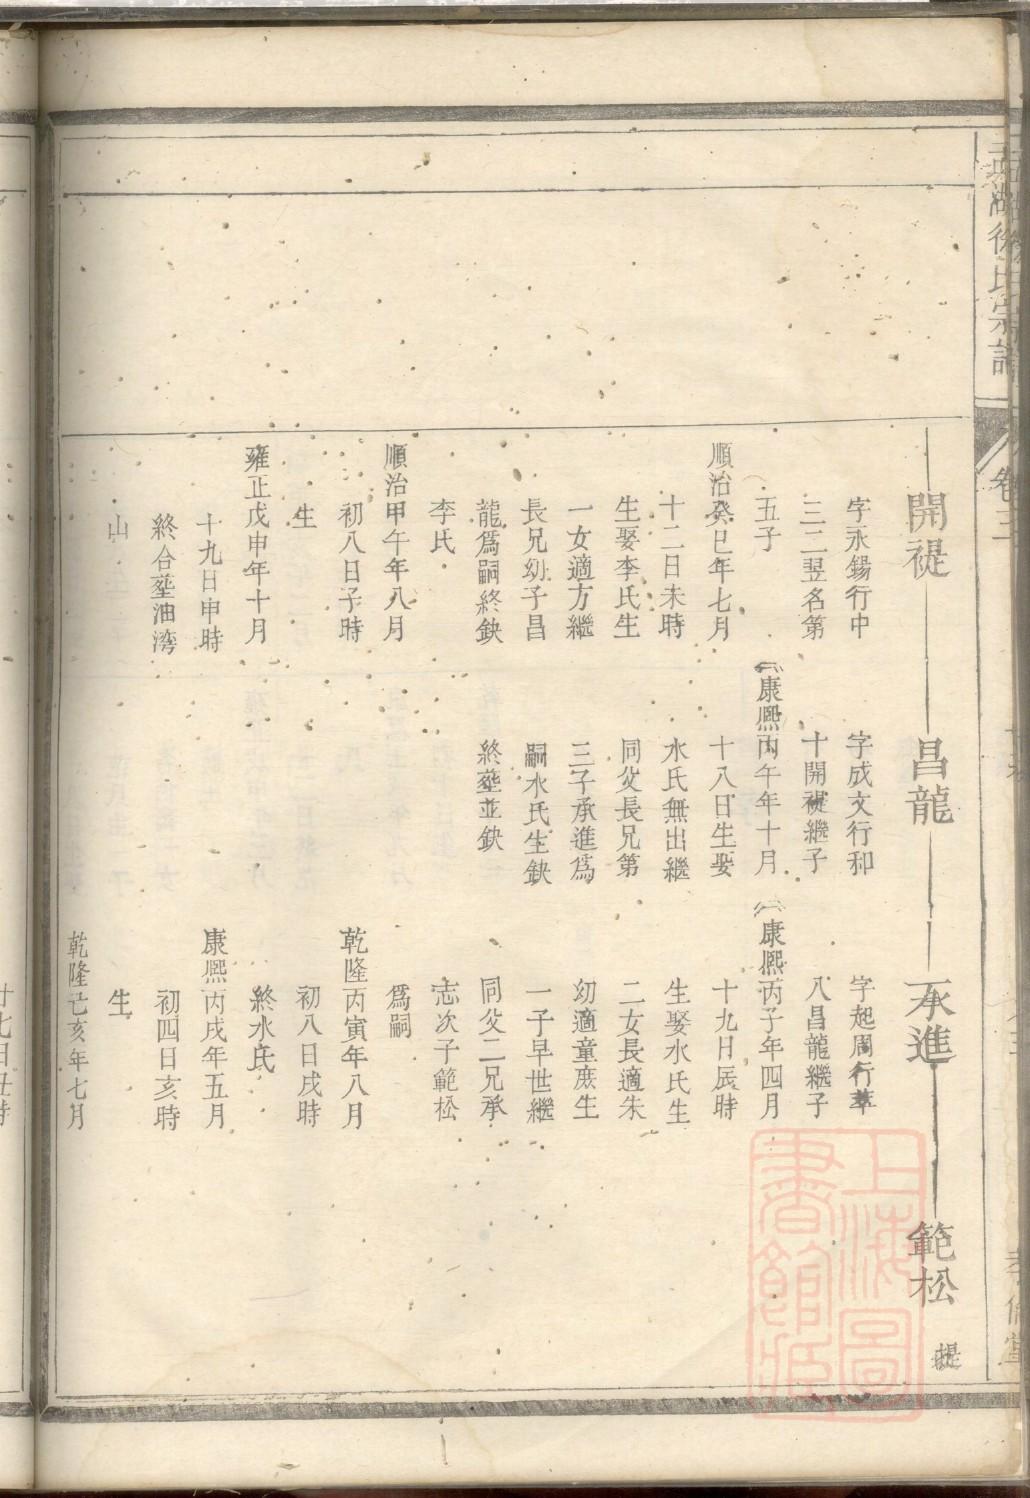 徐氏宗譜
卷三
開禔
昌龍
承進
範松
提
字永錫行中
三二翌名第
五子
順治癸巳年七月
十二日未時
生娶李氏生
一女適方繼
長兄幼子昌
龍爲嗣終缺
李氏
順治甲午年八月
初八日子時
生
雍正戊申年十月
十九日申時
終合塟油湾
山
字成文行和
十開禔繼子
康熙丙午年十月
十八日生娶
水氏無出繼
同父長兄第
三子承進爲
嗣水氏生缺
終塟並缺
字起周行萃
八昌龍繼子
康熙丙子年四月
十九日辰時
生娶水氏生
二女長適朱
幼適童庶生
一子早世繼
同父二兄承
志次子範松
爲嗣
乾隆丙寅年八月
初八日戌時
終水氏
康熙丙戌年五月
初四日亥時
生
乾隆己亥年七月
廿七日丑時
上海圖書館藏